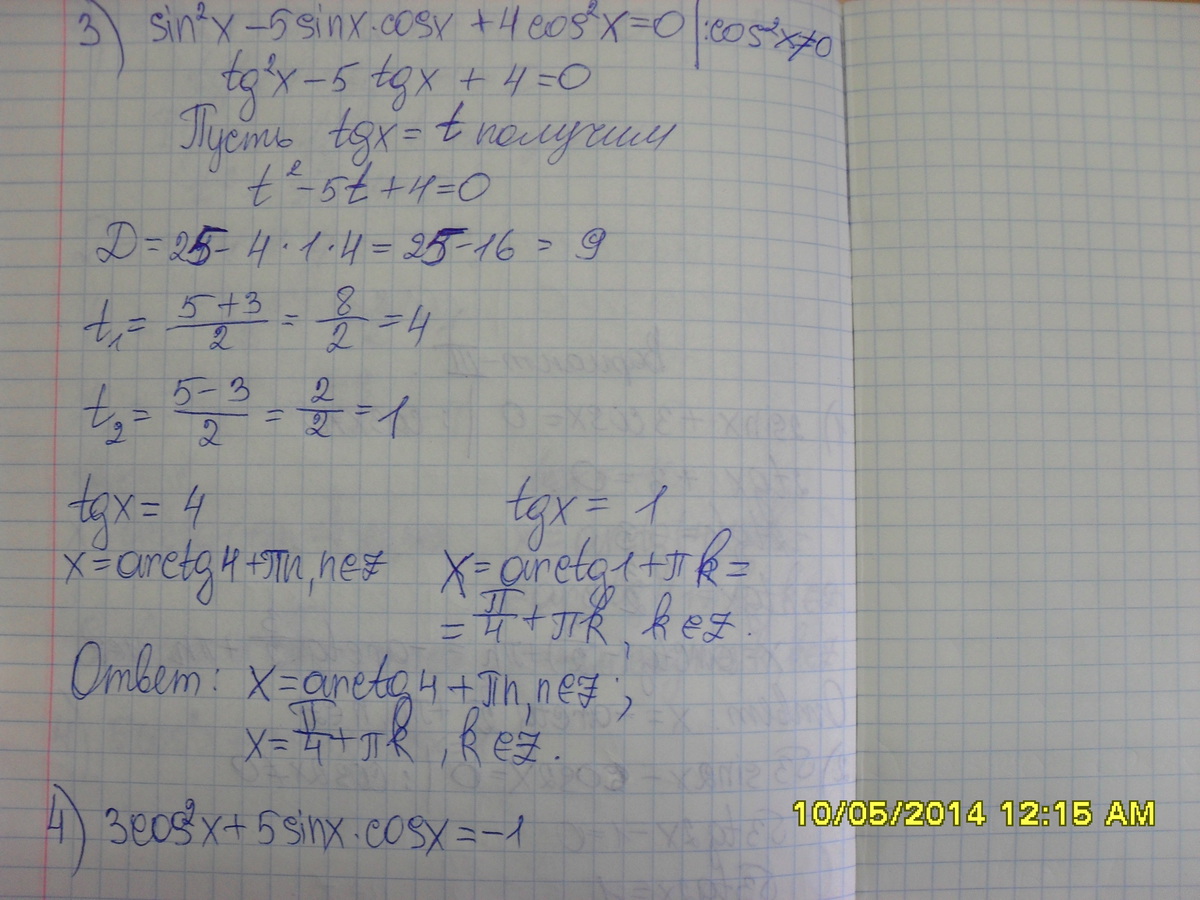 3) sin²x - 5sinx·cosx + 4cos²x = 0 | :cos²x≠0
tg²x - 5 tgx + 4 = 0
Пусть tgx = t получим
t² - 5t + 4 = 0
D = 25 - 4·1·4 = 25 - 16 = 9
t₁ = (5+3)/2 = 8/2 = 4
t₂ = (5-3)/2 = 2/2 = 1
tgx = 4 tgx = 1
x = arctg4 + πn, n∈z x = arctg1 + πk =
= π/4 + πk, k∈z.
Ответ: x = arctg4 + πn, n∈z;
x = π/4 + πk, k∈z.
4) 3cos²x + 5sinx·cosx = -1
10/05/2014 12:15 AM